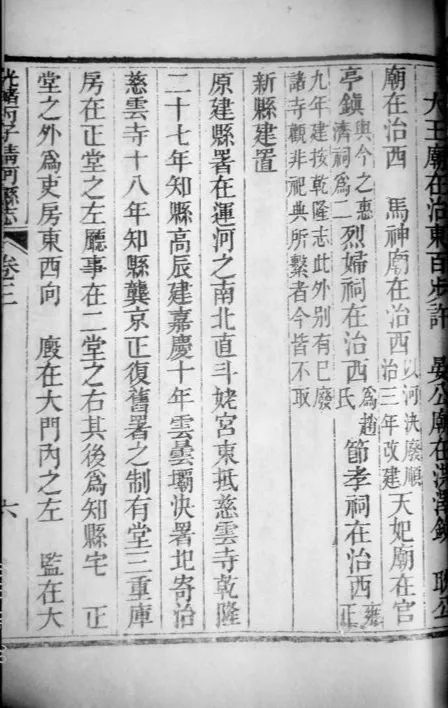 大王廟在治東百步許　晏公廟在
廟在治西　馬神廟在治西以河決廢順治三年改建天妃廟在官
亭鎮與今之惠濟祠爲二烈婦祠在治西爲趙氏節孝祠在治西雍正
九年建按乾隆志此外別有已廢
諸寺觀非祀典所繫者今皆不取
新縣建置
原建縣署在運河之南北直斗姥宮東抵慈雲寺乾隆
二十七年知縣高辰建嘉慶十年雲曇壩決署圮寄治
慈雲寺十八年知縣龔京正復舊署之制有堂三重庫
房在正堂之左廳事在二堂之右其後爲知縣宅　正
堂之外爲吏房東西向　廒在大門內之左　監在大
光緒丙子淸河縣志　卷三　六